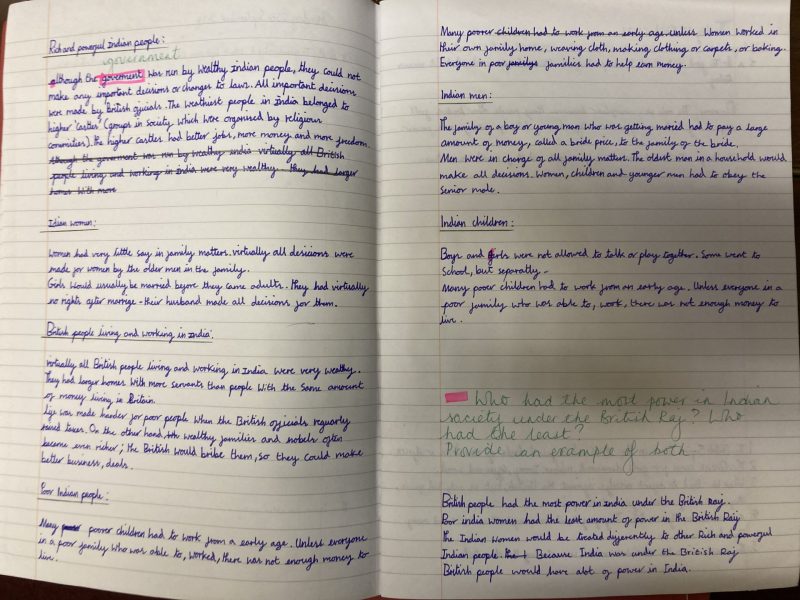 Rich and powerful Indian people:
government
although the goverment was run by wealthy indian people, they could not
make any important decisions or changes to laws. All important decisions
were made by British officials. The wealthiest people in India belonged to
higher 'Castes' (groups in Society which were organised by religious
comunities). The higher castes had better jobs, more money and more freedom.
though the goverment was run by wealthy india virtually all British
people living and working in India were very wealthy. They had larger
homes With more
Indian women:
women had very little say in family matters. virtually all desicions were
made for women by the older men in the family.
Girls Would usually be married before they came adults. They had virtually
no rights after marrige - their husband made all decisions for them.
British people living and working in India:
virtually all British people living and working in India were very wealthy.
They had larger homes With more servants than people With the Same amount
of money living in Britain.
Life was made harder for poor people When the British officials reguarly
raised taxes. On the other hand, wealthy families and nobels often
became even richer; the British would bribe them, so they could make
better business, deals.
Poor Indian people:
Many poorer children had to work from a early age. Unless everyone
in a poor family who was able to, worked, there was not enough money to
live.
Many poorer children had to work from an early age unless Women worked in
their own family home, weaving cloth, making clothing or carpets, or baking.
Everyone in poor familys families had to help earn money.
Indian men:
The family of a boy or young man who was getting maried had to pay a large
amount of money, called a bride price, to the family of the bride.
Men were in charge of all family matters. The oldest man in a household would
make all decisions. Women, children and younger men had to obey the
Senior male.
Indian children:
Boys and girls were not allowed to talk or play together. Some went to
School, but separatly -
Many poor children had to work from an early age. Unless everyone in a
poor family who was able to, work, there was not enough money to
live.
Who had the most power in Indian
society under the British Raj? Who
had the least?
Provide an example of both
British people had the most power in india under the British Raj.
Poor india women had the least amount of power in the British Raij
the Indian Women would be treated differently to other Rich and powerful
Indian people. Because India was under the British Raj
British people would have alot of power in India.